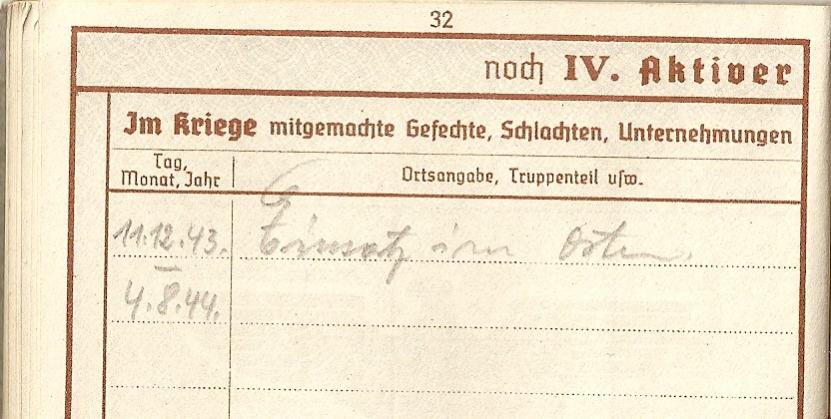 32
noch IV. Aktiver
Im Kriege mitgemachte Gefechte, Schlachten, Unternehmungen
Tag, Monat, Jahr
Ortsangabe, Truppenteil usw.
11.12.43. Einsatz im Osten.
–
4.8.44.